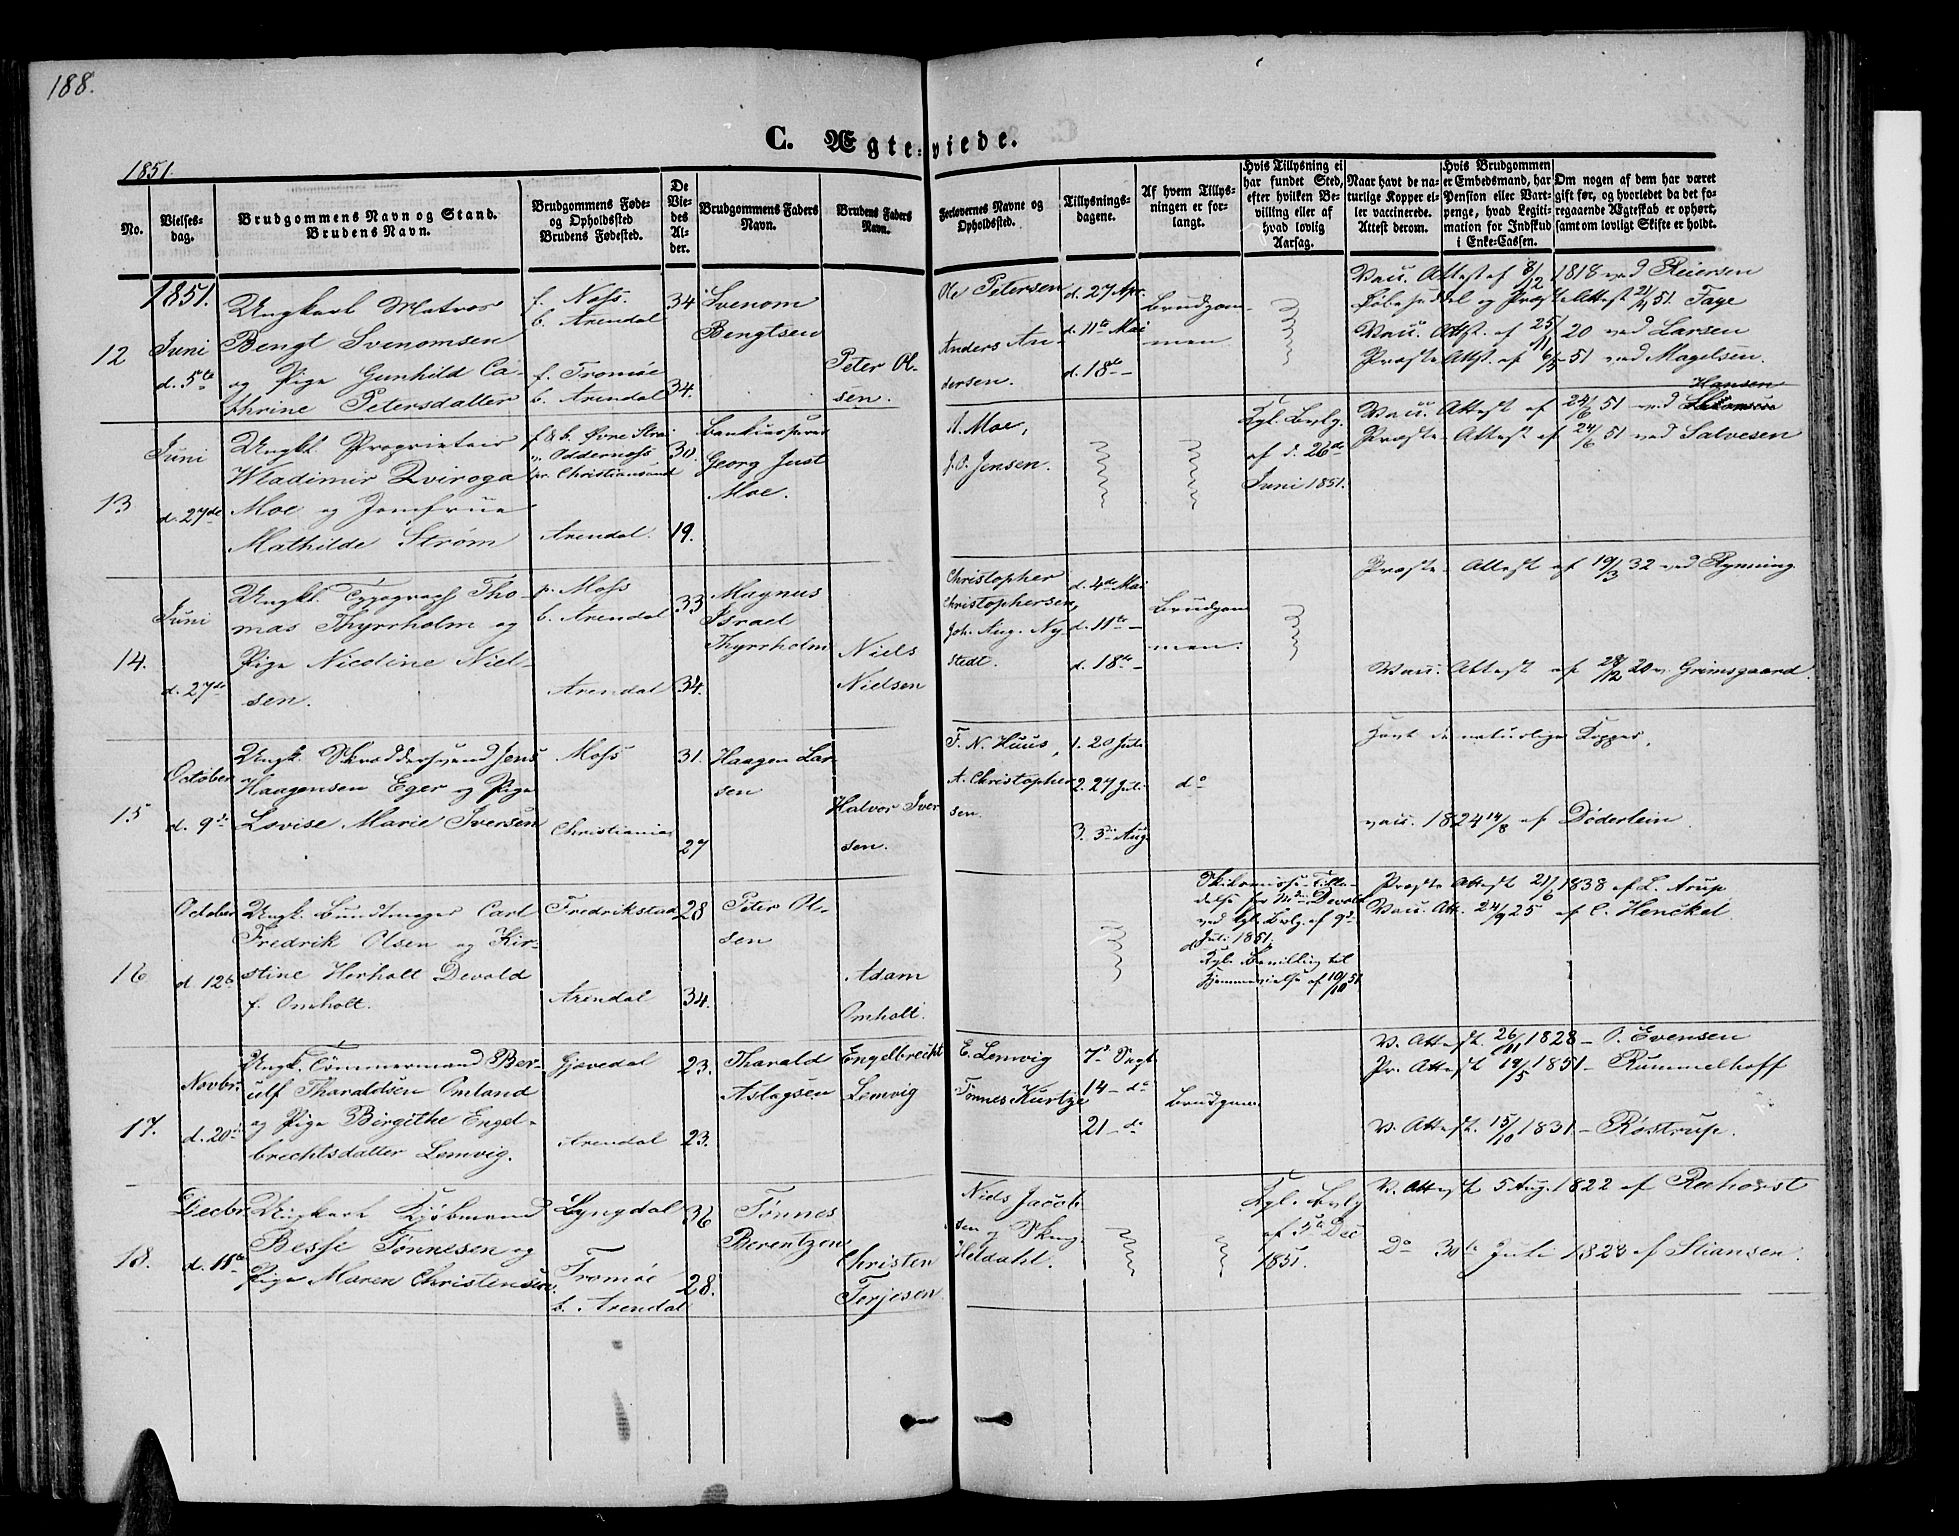 188.
C. Ægteviede.
1851.
No.
Vielses-
dag.
Brudgommens Navn og Stand.
Brudens Navn.
Brudgommens Føde-
og Opholdssted
Brudens Fødested.
De
Vie-
des
Al-
der.
Brudgommens Faders
Navn.
Brudens Faders
Navn.
Forlovernes Navne og
Opholdssted.
Tillysnings-
dagene.
Af hvem Tillys-
ningen er for-
langt.
Hvis Tillysning ei
har fundet Sted,
efter hvilken Be-
villing eller af
hvad lovlig
Aarsag.
Naar havt de na-
turlige Kopper el-
ler vaccinerede.
Attest derom.
Hvis Brudgommen
er Embedsmand, har
Pension eller Vart-
penge, hvad Legiti-
mation for Indskud
i Enke-Cassen.
Om nogen af dem har været
gift før, og hvorledet da det fo-
regaaende Ægteskab er ophørt,
samt om lovligt Skifte er holdt.
1851.
12
Juni
d. 5te
Ungkarl Matros
Bengt Svenomsen
og Pige Gunhild Ca-
thrine Petersdatter
f. Moss.
b. Arendal
f. Tromøe
b. Arendal
34
34.
Svenom
Bengtsen
Peter Ol-
sen.
Ole Petersen
Anders An-
dersen.
d. 27 Apr.
d. 11te Mai
d. 18de -
Brudgom-
men
Vacc. Attest af 8/12 1818 ved Reiersen
Døbeseddel og Præste Attest 21/4 51. Faye
Vacc. Attst. af 25/11 20 ved Larsen
Præste Attst. af 6/5 - 51 ved Magelsen.
13
Juni
d. 27de
Ungkl. Proprietær
Wladimir Qviroga
Moe og Jomfrue
Mathilde Strøm
f & b. Øvre Strai
Oddernæss
pr. Christiansand
Arendal.
30.
19.
Georg Just
Moe.
A. Moe,
J. P. Jensen.
Kgl. Bevlg.
af d. 26de
Juni 1851.
Vacc. Attest af 24/6 51 ved Hansen
Præste Attest af 24/6 51 ved Salvesen
14.
Juni
d. 27de
Ungkl. Typograph Tho-
mas Thyrrholm og
Pige Nicoline Niel-
sen.
p. Moss
b. Arendal
Arendal
33
34.
Magnus
Israel
Thyrrholm
Niels
Nielsen
Christopher
Christophersen,
Joh. Aug. Ny-
stedt.
d. 4de Mai
d. 11te -
d. 18de -
Brudgom
men.
Præste Attest af 19/3 32 ved Rynning
Vacc. Attest af 28/12 20 v. Grimsgaard.
15
October
d. 9de
Ungk. Skræddersvend Jens
Haagensen Eger og Pige
Lovise Marie Iversen
Moss
Christiania
31.
27
Haagen Lar
sen
Halvor Iver
sen.
F. N. Huus,
A. Christopher
sen.
1. 20 Juli
2. 27 Juli
3. 3die Aug.
do
Havt de naturlige Kopper.
vacc. 1824 14/8 af Døderlein
16
October
d 12te
Ungk. Bundtmager Carl
Fredrik Olsen og Kir-
stine Herholt Devold
f. Omholt.
Fredrikstad
Arendal
28
34.
Peter Ol-
sen
Adam
Omholt.
Skilsmisse-Tilla-
delse for Md. Devold
ved Kgl. Bevlg. af 9de
Juli 1851.
Kgl. Bevilling til
Hjemmevielse af 10/10 51
Præste Attest 21/6 1838 af L. Arup
Vacc. Att. 24/9 25 af C. Henckel
17.
Novbr.
d. 20de
Ungk. Tømmermand Ber-
ulf Tharaldsen Omland
og Pige Birgithe Engel-
brechtsdatter Lemvig.
Gjøvedal
Arendal
23.
23.
Tharald
Aslagsen
Engelbrecht
Lemvig
E. Lemvig
Tønnes Kurtze
7de Septb
14 - do
21 - do
Brudgom.
V. Attest 26/11 1828 - O. Evensen
Pr. Attest 19/5 1851 - Rummelhoff
V. Attest. 15/10 1831 - Røstrup.
18.
Decbr.
d. 15de
Ungkarl Kjøbmand
Besse Tønnesen og
Pige Maren Christensen
Lyngdal
Tromøe
b. Arendal
36
28.
Tønnes
Berentzen
Christen
Terjesen.
Niels Jacob-
sen og
Heldahl.
Kgl. Bevlg
af 5te Dec
1851.
V. Attest 5 Aug. 1822 af
Do 30te Juli 1823 af Stiansen.